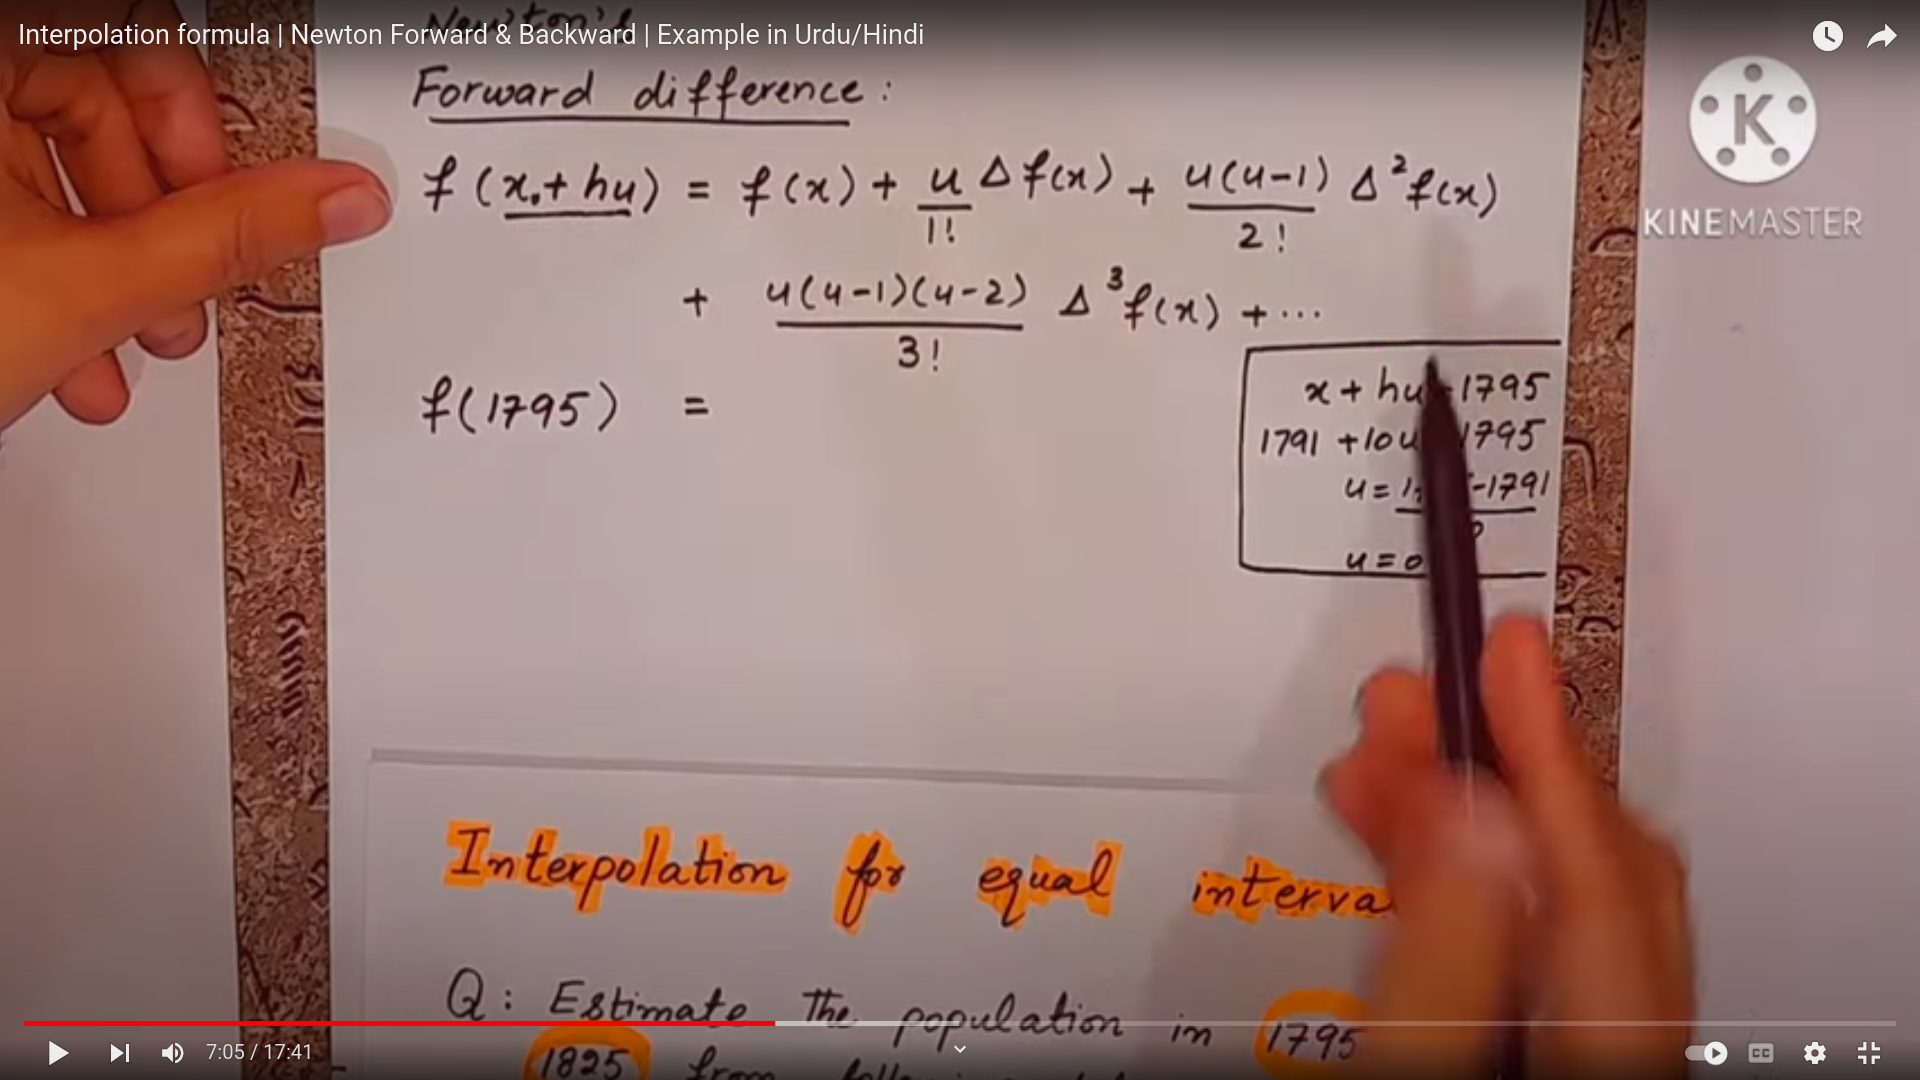 Interpolation formula | Newton Forward & Backward | Example in Urdu/Hindi
Newton's
Forward difference:
f(x.+hu) = f(x) + u/1! Δf(x) + u(u-1)/2! Δ²f(x)
+ u(u-1)(u-2)/3! Δ³f(x) + ...
f(1795) =
x + hu 1795
1791 +10u 1795
u = -1791
u = 0
K
KINEMASTER
Interpolation for equal interva
Q: Estimate the population in 1795
1825 from
7:05 / 17:41
CC